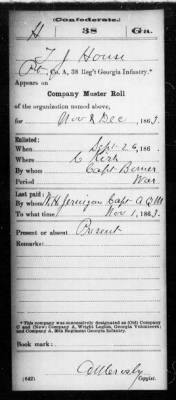 (Confederate.)
H 38 Ga.
T J House
Pvt, Co. A, 38 Reg't Georgia Infantry.*
Appears on
Company Muster Roll
of the organization named above,
for Nov & Dec, 1863.
Enlisted:
When Sept 26, 186 .
Where C Kirk
By whom Capt
Period War
Last paid:
By whom Capt A Q M
To what time Nov 1, 1863.
Present or absent Present
Remarks:
* This company was successively designated as (Old) Company
C and (New) Company A, Wright Legion, Georgia Volunteers;
and Company A, 38th Regiment Georgia Infantry.
Book mark:
(642)
Copyist.